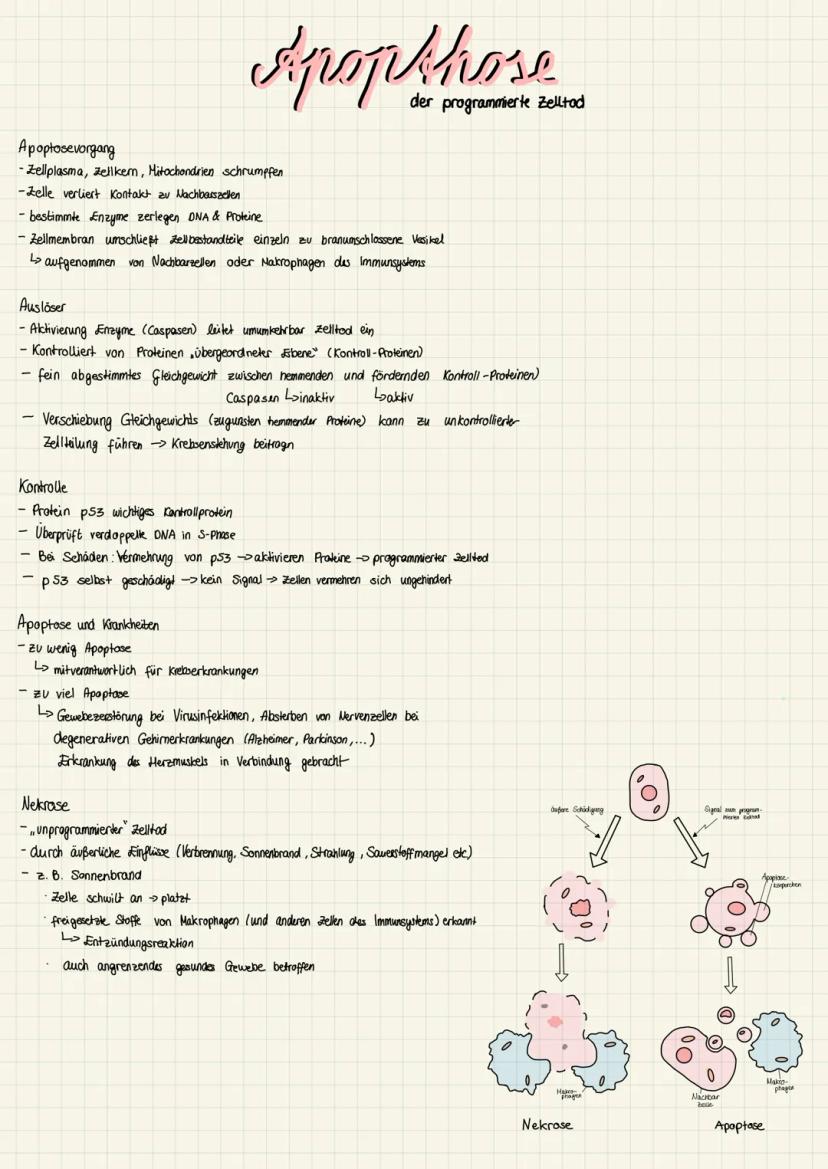 Apopthose
der programmierte Zelltod
Apoptosevorgang
- Zellplasma, Zellkern, Mitochondrien schrumpfen
- Zelle verliert Kontakt zu Nachbarszellen
- bestimmte Enzyme zerlegen DNA & Proteine
- Zellmembran umschließt Zellbestandteile einzeln zu branumschlossene Vesikel
↳ aufgenommen von Nachbarzellen oder Makrophagen des Immunsystems
Auslöser
- Aktivierung Enzyme (Caspasen) leitet umumkehrbar Zelltod ein
- Kontrolliert von Proteinen „übergeordneter Ebene" (Kontroll-Proteinen)
- fein abgestimmtes Gleichgewicht zwischen hemmenden und fördernden Kontroll-Proteinen)
Caspasen ↳ inaktiv ↳ aktiv
- Verschiebung Gleichgewichts (zugunsten hemmender Proteine) kann zu unkontrollierter
Zellteilung führen -> Krebsenstehung beitragen
Kontrolle
- Protein p53 wichtiges Kontrollprotein
- Überprüft verdoppelte DNA in S-Phase
- Bei Schäden: Vermehrung von p53 -> aktivieren Proteine -> programmierter Zelltod
- p53 selbst geschädigt -> kein Signal -> Zellen vermehren sich ungehindert
Apoptose und Krankheiten
- zu wenig Apoptose
↳ mitverantwortlich für Krebserkrankungen
- zu viel Apoptose
↳ Gewebezerstörung bei Virusinfektionen, Absterben von Nervenzellen bei
degenerativen Gehirnerkrankungen (Alzheimer, Parkinson, ...)
Erkrankung des Herzmuskels in Verbindung gebracht
Nekrose
- „unprogrammierter" Zelltod
- durch äußerliche Einflüsse (Verbrennung, Sonnenbrand, Strahlung, Sauerstoffmangel etc)
- z. B. Sonnenbrand
· Zelle schwilt an -> platzt
· freigesetzte Stoffe von Makrophagen (und anderen Zellen des Immunsystems) erkannt
↳ Entzündungsreaktion
· auch angrenzendes gesundes Gewebe betroffen
äußere Schädigung
Signal zum program-
mierten Zelltod
Apoptose-
körperchen
Makro-
phagen
Nachbar
zelle
Makro-
phagen
Nekrose
Apoptose